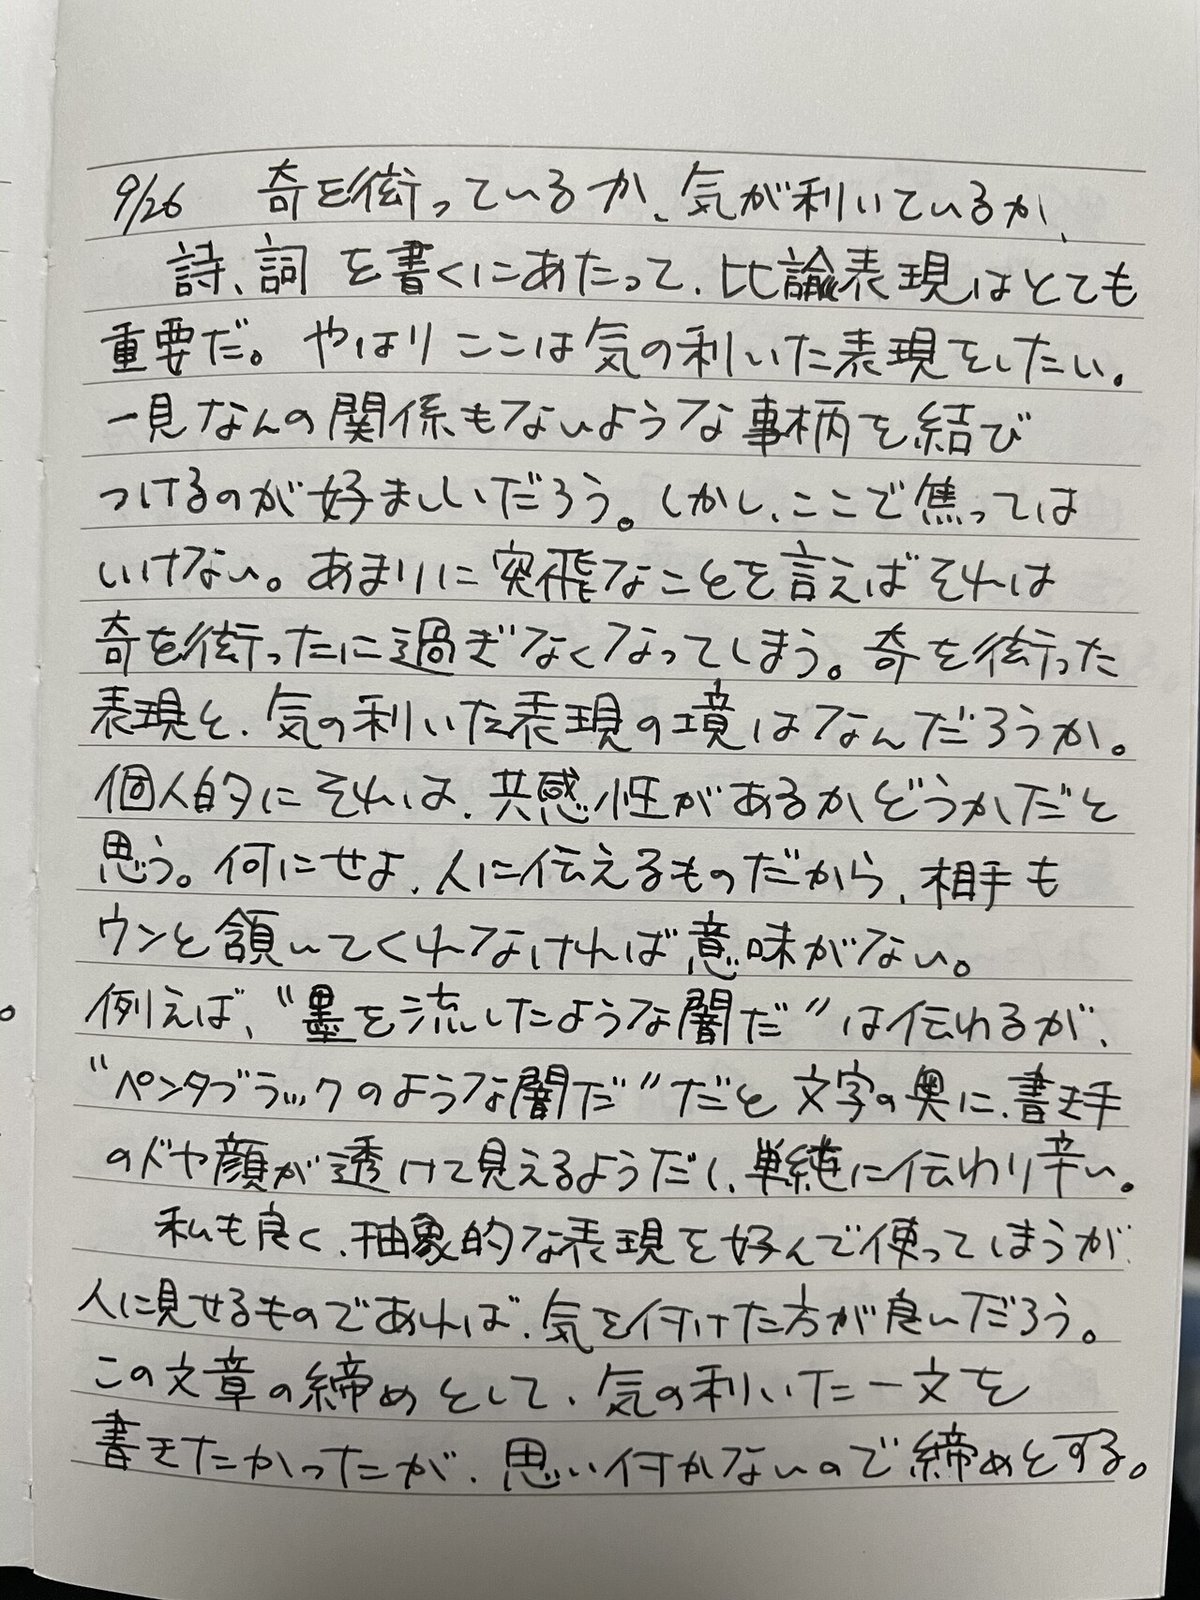 9/26 奇を衒っているか、気が利いているか、
詩、詞を書くにあたって、比諭表現はとても
重要だ。やはりここは気の利いた表現をしたい。
一見なんの関係もないような事柄を結び
つけるのが好ましいだろう。しかし、ここで焦っては
いけない。あまりに突飛なことを言えばそれは
奇を衒ったに過ぎなくなってしまう。奇を衒った
表現と、気の利いた表現の境はなんだろうか。
個人的にそれは、共感性があるかどうかだと
思う。何にせよ、人に伝えるものだから、相手も
ウンと頷いてくれなければ意味がない。
例えば、“墨を流したような闇だ”は伝わるが、
“ペンタブラックのような闇だ”だと文字の奥に、書き手
のドヤ顔が透けて見えるようだし、単純に伝わり辛い。
私も良く、抽象的な表現を好んで使ってしまうが
人に見せるものであれば、気を付けた方が良いだろう。
この文章の締めとして、気の利いた一文を
書きたかったが、思い付かないので締めとする。